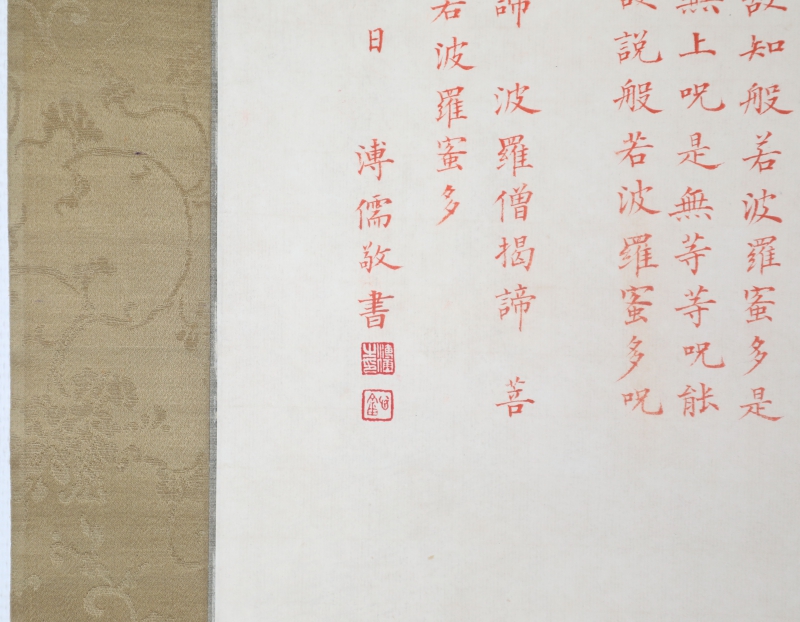 故知般若波羅蜜多是
無上呪是無等等呪能
說般若波羅蜜多呪
諦 波羅僧揭諦 菩
若波羅蜜多
日 溥儒敬書
溥儒之印